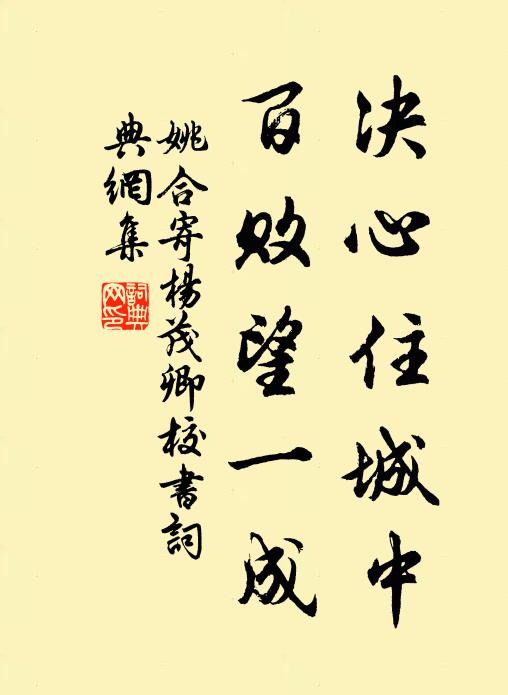 决心住城中
百败望一成
姚合寄楊茂卿校書詞
典網集
詞典網印